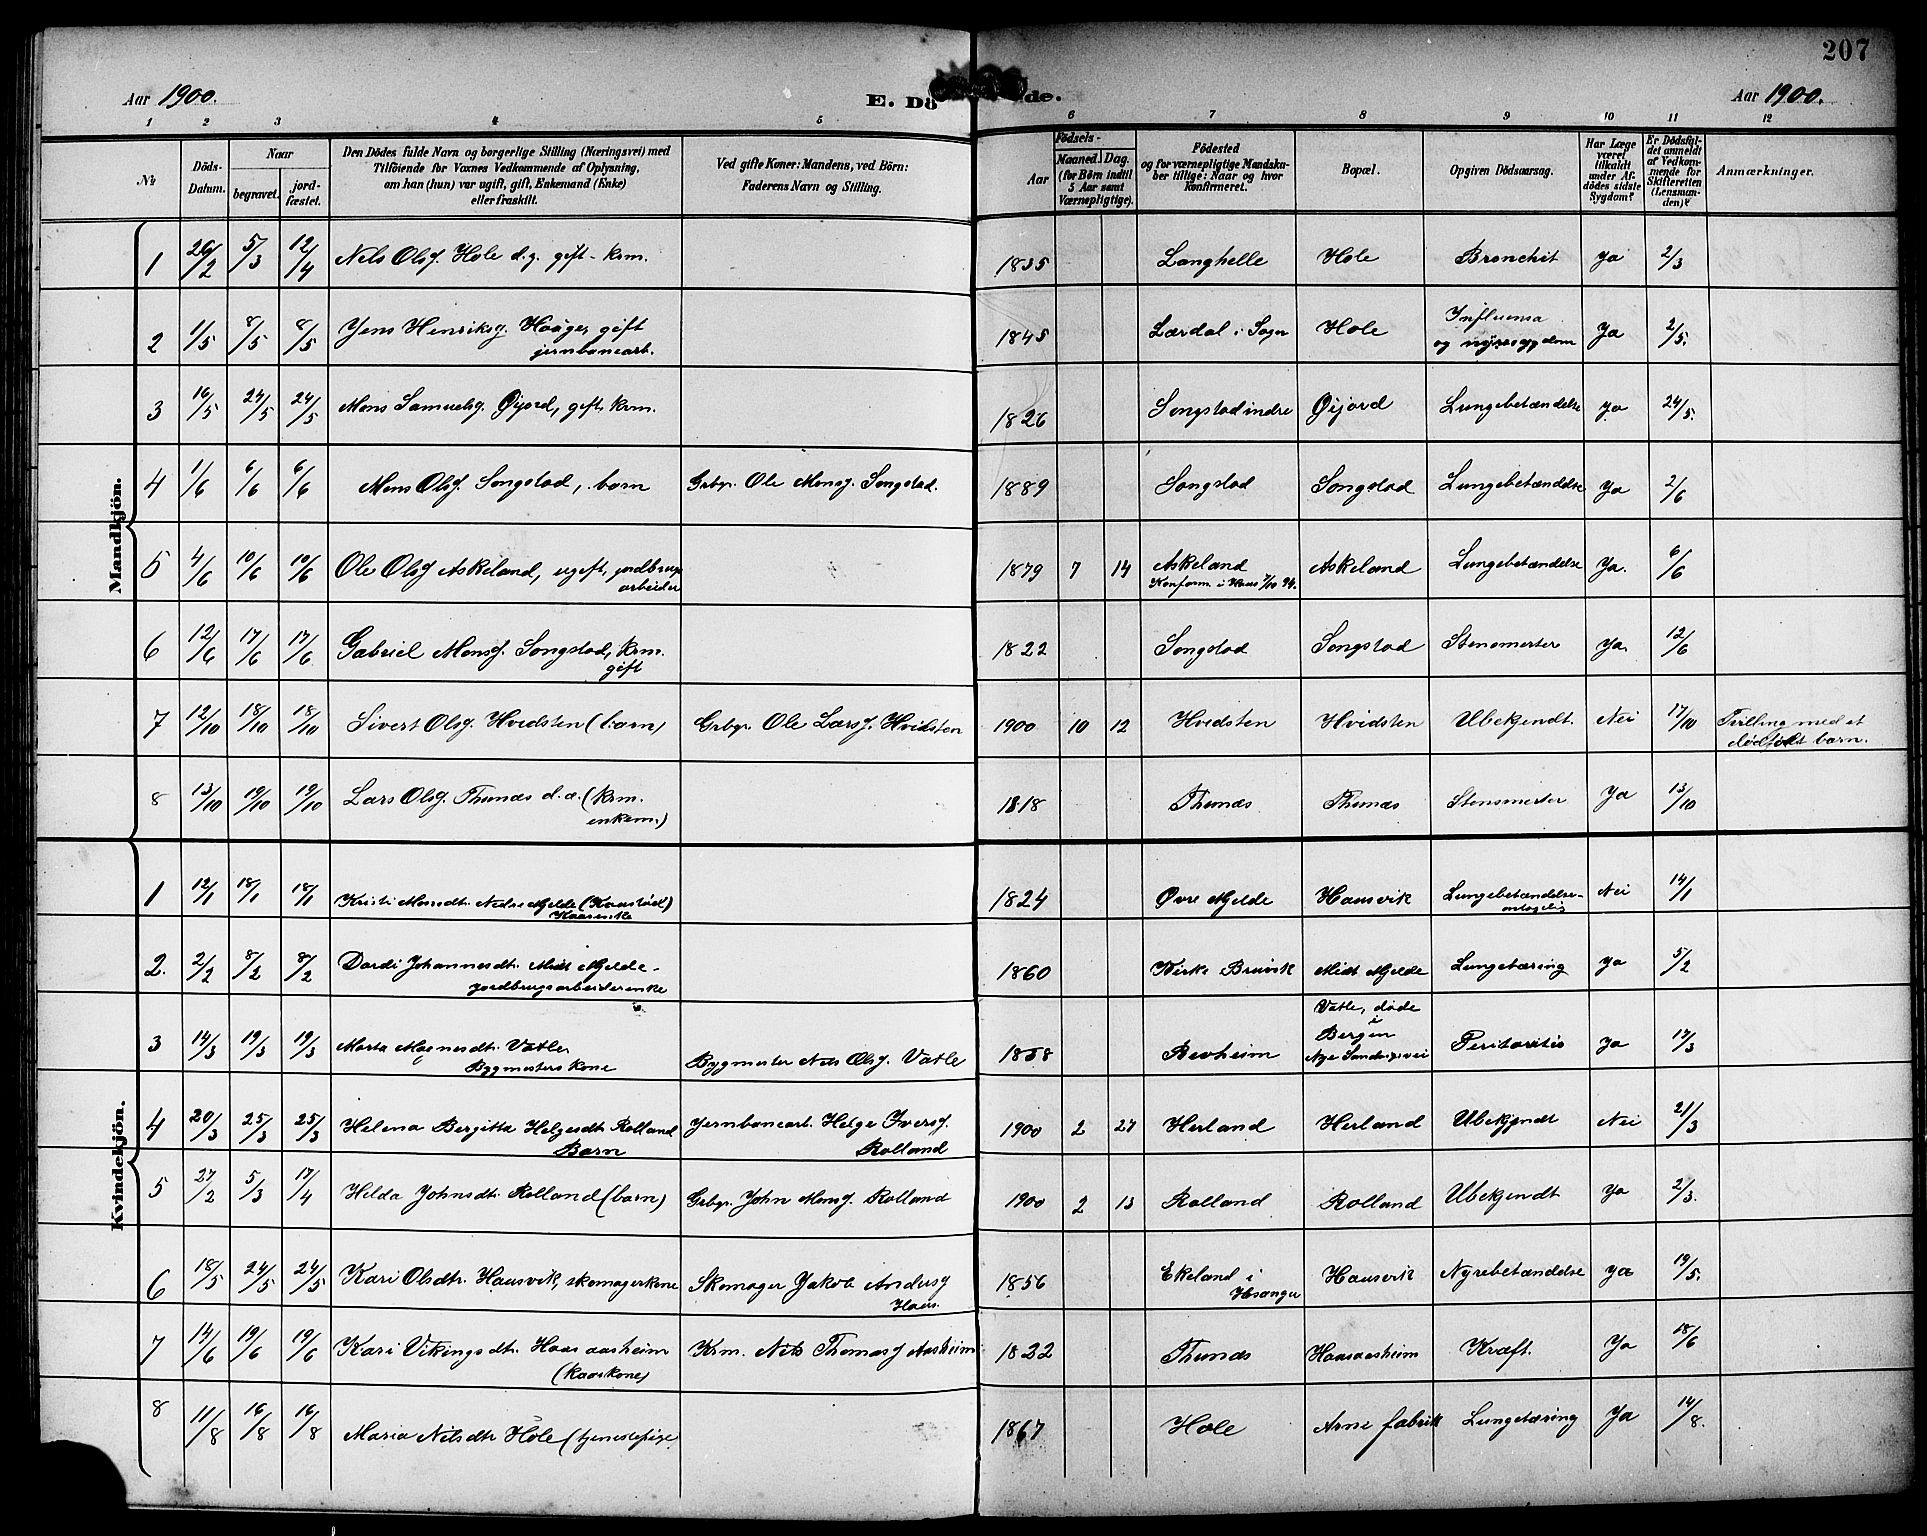 207
Aar 1900.
E. Dö de.
Aar 1900.
1 2 3 4 5 6 7 8 9 10 11 12
№
Döds-Datum.
Naar
begravet.
jord-fæstet.
Den Dödes fulde Navn og borgerlige Stilling (Næringsvei) med
Tilföiende for Voxnes Vedkommende af Oplysning,
om han (hun) var ugift, gift, Enkemand (Enke)
eller fraskilt.
Ved gifte Koner: Mandens, ved Börn:
Faderens Navn og Stilling.
Födsels-
Aar
Maaned. Dag.
(for Börn indtil
5 Aar samt
Værnepligtige).
Födested
og for værnepligtige Mandska-
ber tillige: Naar og hvor
Konfirmeret.
Bopæl.
Opgiven Dödsaarsag.
Har Læge
været
tilkaldt
under Af-
dödes sidste
Sygdom?
Er Dödsfal-
det anmeldt
af Vedkom-
mende for
Skifteretten
(Lensman-
den)?
Anmærkninger.
Mandkjön.
1 26/2 5/3 12/4 Nels Olsg. Hole d.y. gift - krm. 1835 Langhelle Hole Bronchit Ja 2/3
2 1/5 8/5 8/5 Jens Henriksg. Hauge, gift 1845 Lærdal i Sogn Hole Influensa Ja 2/5.
jernbanearb. og nyresygdom
3 16/5 24/5 24/5 Mons Samuelsg. Øijord, gift, krm. 1826 Songstad indre Øijord Lungebetændelse Ja 24/5.
4 1/6 6/6 6/6 Mons Olsg. Songstad, barn Grbgr. Ole Monsg. Songstad. 1889 Songstad Songstad Lungebetændelse Ja 2/6
5 4/6 10/6 10/6 Ole Olsg Askeland, ugift, jordbrugs 1879 7 14 Askeland Askeland Lungebetændelse Ja. 6/6
arbeider Konfirm. i Haus 7/10 94.
6 12/6 17/6 17/6 Gabriel Monsg. Songstad, krm. 1822 Songstad Songstad Stensmerter Ja. 12/6
gift
7 12/10 18/10 18/10 Sivert Olsg. Hvidsten (barn) Grbgr. Ole Larsg. Hvidsten 1900 10 12 Hvidsten Hvidsten Ubekjendt. Nei 17/10 Tvilling med et
dødfødt barn.
8 13/10 19/10 19/10 Lars Olsg. Thunæs d.æ. (krm. 1818 Thunæs Thunæs Stensmerter Ja 13/10
enkem.)
Kvindekjön.
1 12/1 18/1 18/1 Kristi Monsdtr. Nedre Mjelde (Kaustød) 1824 Øvre Mjelde Hausvik Lungebetændelse Nei 14/1
Kaarenke antagelig
2. 2/2 8/2 8/2 Dordi Johannesdtr. Midt Mjelde - 1860 Kirke Bruvik Midt Mjelde Lungetæring Ja 5/2
jordbrugsarbeiderenke
3 14/3 19/3 19/3 Marta Magnesdtr. Vatle Bygmester Nils Olsg. Vatle 1858 Revheim Vatle, døde i Bergen Peritonitis Ja 17/3
Bygmesters kone Nye Sandviksvei
4 20/3 25/3 25/3 Helena Bergitta Helgesdtr. Rolland Jernbanearb. Helge Iversg. 1900 2 27 Herland Herland Ubekjendt Nei 21/3
Barn Rolland
5 27/2 5/3 17/4 Hilda Johnsdtr. Rolland (barn) Grbgr. John Monsg. Rolland 1900 2 13 Rolland Rolland Ubekjendt Ja 2/3.
6 18/5 24/5 24/5 Kari Olsdtr. Hausvik, skomagerkone Skomager Jakob Andersg 1856 Ekeland i Hausvik Nyrebetændelse Ja 19/5.
Haus. Hosanger
7 14/6 19/6 19/6 Kari Vikingsdtr. Haus aasheim Krm. Nils Thomasg Aasheim 1822 Thunæs Hausaasheim Kræft. Ja 18/6
(kaarkone)
8 11/8 16/8 16/8 Maria Nilsdtr Hole (tjenestepige 1867 Hole Arne fabrik Lungetæring Ja 14/8.